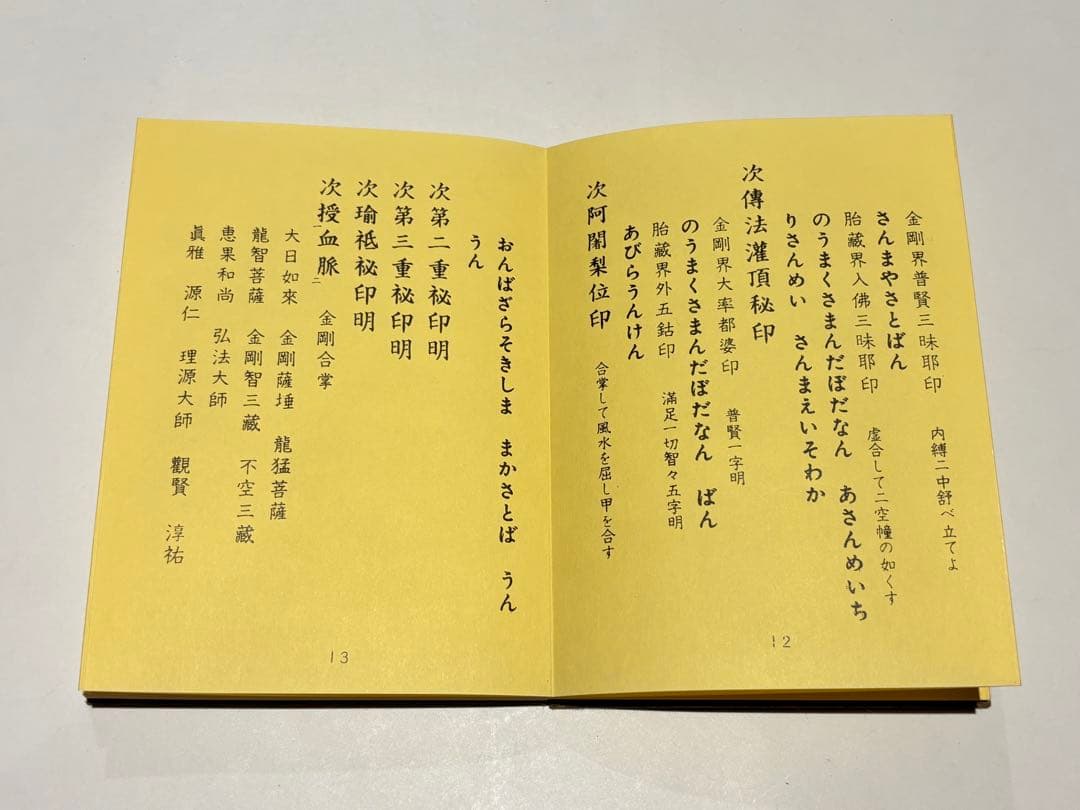 金剛界普賢三昧耶印　内縛二中舒べ立てよ
さんまやさとばん
胎藏界入佛三昧耶印　虚合して二空幢の如くす
のうまくさまんだぼだなん　あさんめいち
りさんめい　さんまえいそわか
次傳法灌頂秘印
金剛界大率都婆印　普賢一字明
のうまくさまんだぼだなん　ばん
胎藏界外五鈷印　滿足一切智々五字明
あびらうんけん
次阿闍梨位印　合掌して風水を屈し甲を合す
12
おんばざらそきしま　まかさとば　うん
うん
次第二重祕印明
次第三重祕印明
次瑜祇祕印明
次授一血脈二　金剛合掌
大日如來　金剛薩埵　龍猛菩薩
龍智菩薩　金剛智三藏　不空三藏
恵果和尚　弘法大師
眞雅　源仁　理源大師　觀賢　淳祐
13